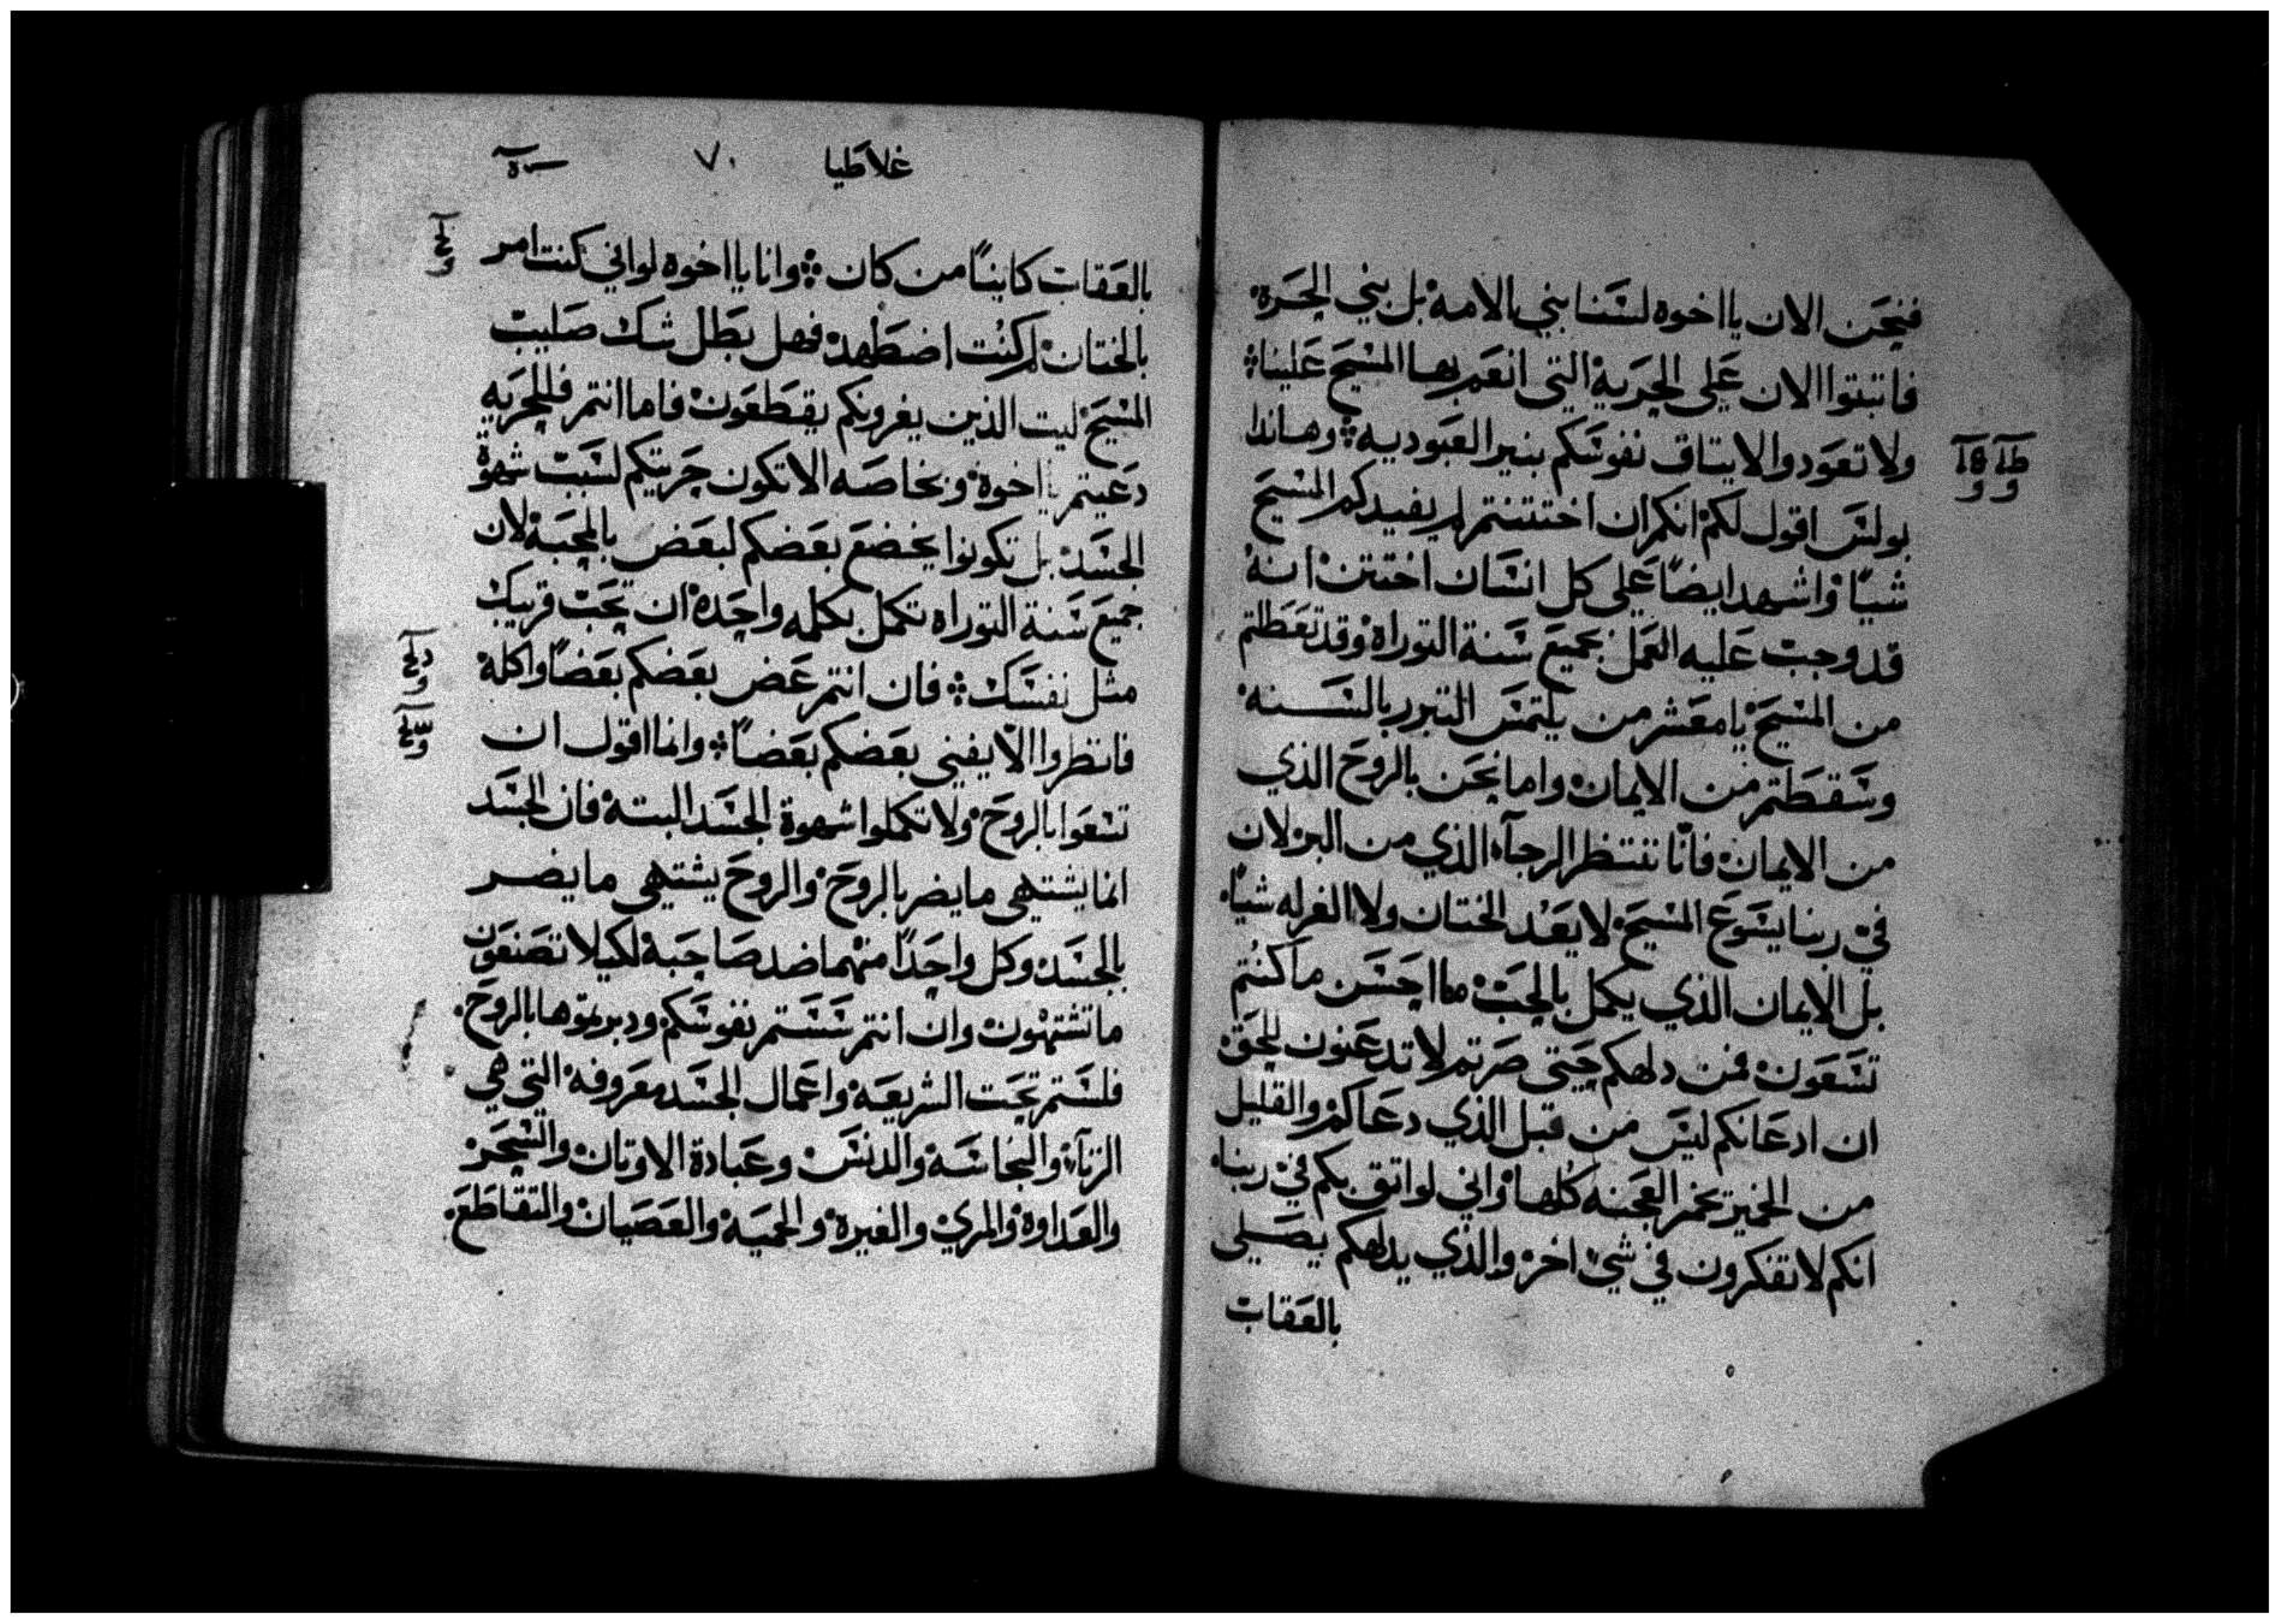 فنحن الان يا اخوه لسنا بني الامة بل بني الحرة
فاتبتوا الان على الحرية التي انعم بها المسيح علينا
ولا تعودوا لايتاق نفوسكم بنير العبوديه وهاندا
بولس اقول لكم انكم ان اختتنتم لم يفيدكم المسيح
شياً واشهد ايضاً على كل انسان اختتن انه
قد وجبت عليه العمل بجميع سنة التوراة وقد تعطلتم
من المسيح يا معشر من يلتمس التبرر بالسنه
وسقطتم من الايمان واما نحن بالروح الذي
من الايمان فانّا ننتظر الرجآء الذي من البر لان
في ربنا يسوع المسيح لا يعد الختان ولا الغرله شياً
بل الايمان الذي يكمل بالحب ما احسن ما كنتم
تسعون فمن دلهكم حتى صرتم لا تدعنون للحق
ان ادعانكم ليس من قبل الذي دعاكم والقليل
من الخمير يخمر العجنه كلها واني لواتق بكم في ربنا
انكم لا تفكرون في شي اخر والذي يدلهكم يصلي
بالعقاب
غلاطيا ٧٠
بالعقاب كايناً من كان وانا يا اخوه لو اني كنت امر
بالختان لم كنت اضطهد فهل بطل شك صليب
المسيح ليت الذين يغرونكم يقطعون فاما انتم فللحريه
دعيتم يا اخوة وبخاصه الا تكون حريتكم لسبب شهوة
الجسد بل تكونوا يخضع بعضكم لبعض بالمحبة لان
جميع سنة التوراه تكمل بكلمه واحدة ان تحب قريبك
مثل نفسك فان انتم عض بعضكم بعضاً واكله
فانظروا الّا يفني بعضكم بعضاً وانما اقول ان
تسعوا بالروح ولا تكملوا شهوة الجسد البتة فان الجسد
انما يشتهي ما يضر بالروح والروح يشتهي ما يضر
بالجسد وكل واحداً منهما ضد صاحبة لكيلا تصنعون
ما تشتهون وان انتم سستم نفوسكم ودبرتموها بالروح
فلستم تحت الشريعة واعمال الجسد معروفه التي هي
الزنآء والنجاسة والدنس وعبادة الاوتان والسحر
والعداوة والمري والغيرة والحمية والعصيان والتقاطع